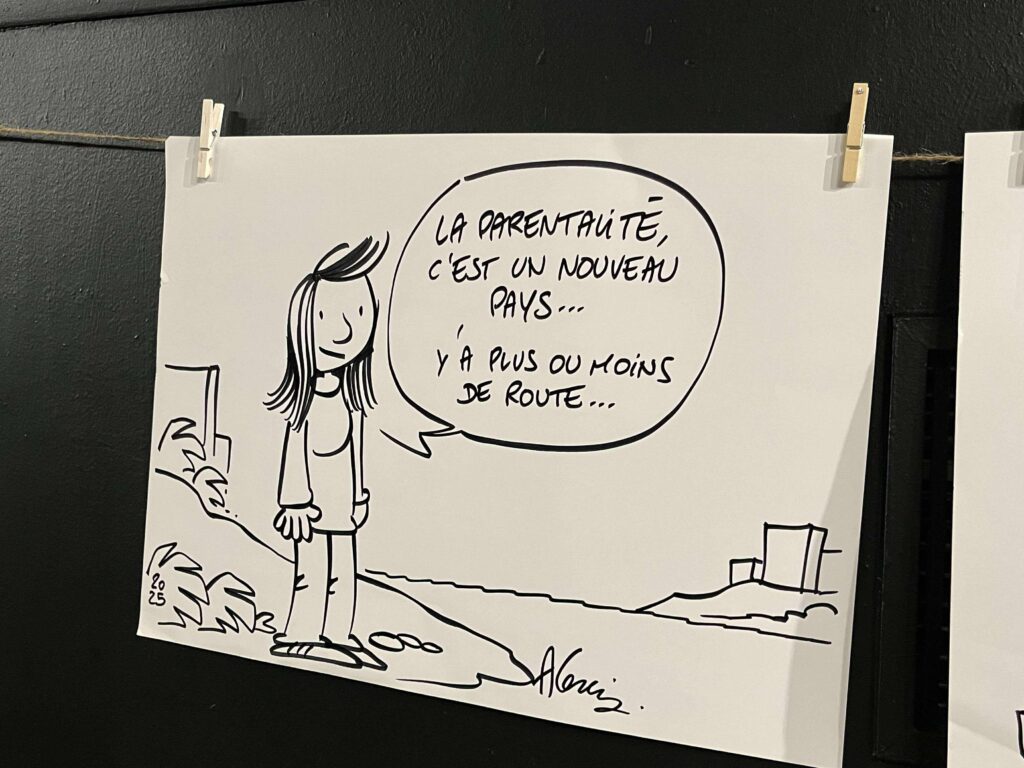 LA PARENTALITÉ,
C'EST UN NOUVEAU
PAYS...
Y'A PLUS OU MOINS
DE ROUTE...
20
25